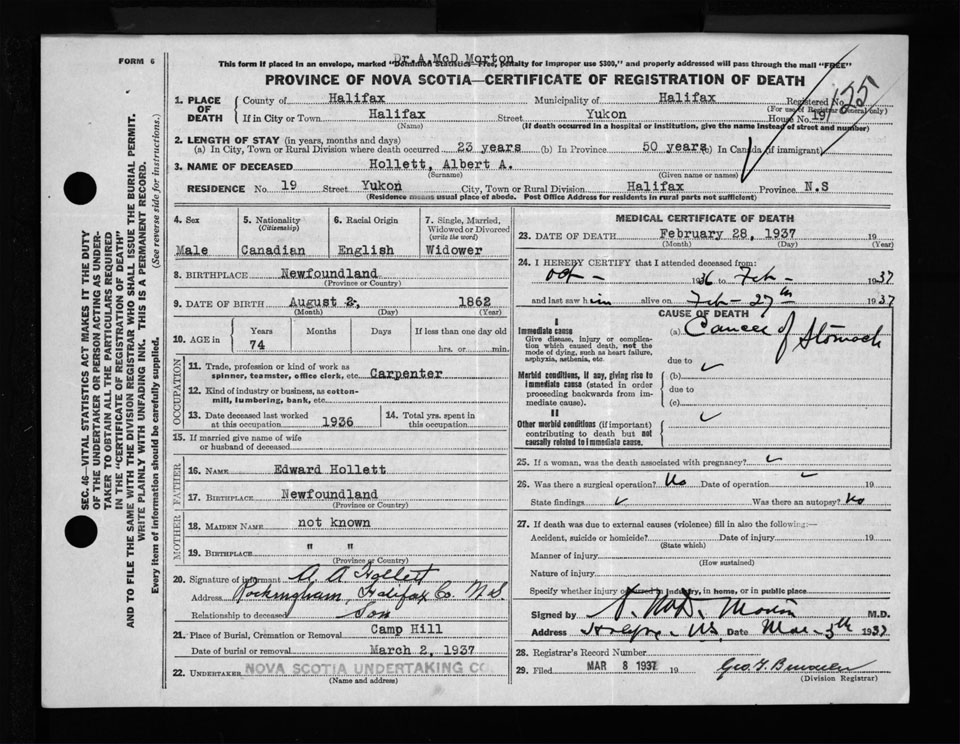 FORM 6
Dr. A. McD Morton
This form if placed in an envelope, marked "Dominion Statistics—Free, penalty for improper use $300," and properly addressed will pass through the mail "FREE"
PROVINCE OF NOVA SCOTIA—CERTIFICATE OF REGISTRATION OF DEATH
125
1. PLACE OF DEATH
County of Halifax Municipality of Halifax Registered No.
(For use of Registrar General only)
If in City or Town Halifax Street Yukon House No. 19
(Name) (If death occurred in a hospital or institution, give the name instead of street and number)
2. LENGTH OF STAY (in years, months and days)
(a) In City, Town or Rural Division where death occurred 23 years (b) In Province 50 years (c) In Canada (if immigrant)
3. NAME OF DECEASED Hollett, Albert A.
(Surname) (Given name or names)
RESIDENCE No. 19 Street Yukon City, Town or Rural Division Halifax Province N.S
(Residence means usual place of abode. Post Office Address for residents in rural parts not sufficient)
4. Sex
Male
5. Nationality
(Citizenship)
Canadian
6. Racial Origin
English
7. Single, Married, Widowed or Divorced
(write the word)
Widower
8. BIRTHPLACE Newfoundland
(Province or Country)
9. DATE OF BIRTH August 2, 1862
(Month) (Day) (Year)
10. AGE in
Years Months Days If less than one day old
74 hrs. or min.
OCCUPATION
11. Trade, profession or kind of work as
spinner, teamster, office clerk, etc. Carpenter
12. Kind of industry or business, as cotton-
mill, lumbering, bank, etc.
13. Date deceased last worked
at this occupation 1936
14. Total yrs. spent in
this occupation
15. If married give name of wife
or husband of deceased
FATHER
16. NAME Edward Hollett
17. BIRTHPLACE Newfoundland
(Province or Country)
MOTHER
18. MAIDEN NAME not known
19. BIRTHPLACE " "
(Province or Country)
20. Signature of informant A A Hollett
Address Rockingham, Halifax Co. N.S.
Relationship to deceased Son
21. Place of Burial, Cremation or Removal Camp Hill
Date of burial or removal March 2, 1937
22. UNDERTAKER NOVA SCOTIA UNDERTAKING CO.
(Name and address)
MEDICAL CERTIFICATE OF DEATH
23. DATE OF DEATH February 28, 1937 19
(Month) (Day) (Year)
24. I HEREBY CERTIFY that I attended deceased from:
Oct - 1936 to Feb - 1937
and last saw him alive on Feb - 27th 1937
CAUSE OF DEATH
I
Immediate cause
Give disease, injury or complica-
tion which caused death, not the
mode of dying, such as heart failure,
asphyxia, asthenia, etc.
(a) Cancer of Stomach
due to
Morbid conditions, if any, giving rise to
immediate cause (stated in order
proceeding backwards from im-
mediate cause).
(b)
due to
(c)
II
Other morbid conditions (if important)
contributing to death but not
causally related to immediate cause.
25. If a woman, was the death associated with pregnancy?
26. Was there a surgical operation? No Date of operation 19
State findings Was there an autopsy? No
27. If death was due to external causes (violence) fill in also the following:—
Accident, suicide or homicide? Date of injury 19
(State which)
Manner of injury
(How sustained)
Nature of injury
Specify whether injury occurred in industry, in home, or in public place
Signed by A. McD. Morton M.D.
Address Halifax - NS Date Mar - 5th 1937
28. Registrar's Record Number
29. Filed MAR 8 1937 19
(Division Registrar)
SEC. 46—VITAL STATISTICS ACT MAKES IT THE DUTY
OF THE UNDERTAKER OR PERSON ACTING AS UNDER-
TAKER TO OBTAIN ALL THE PARTICULARS REQUIRED
IN THE "CERTIFICATE OF REGISTRATION OF DEATH"
AND TO FILE THE SAME WITH THE DIVISION REGISTRAR WHO SHALL ISSUE THE BURIAL PERMIT.
WRITE PLAINLY WITH UNFADING INK. THIS IS A PERMANENT RECORD.
Every item of information should be carefully supplied. (See reverse side for instructions.)